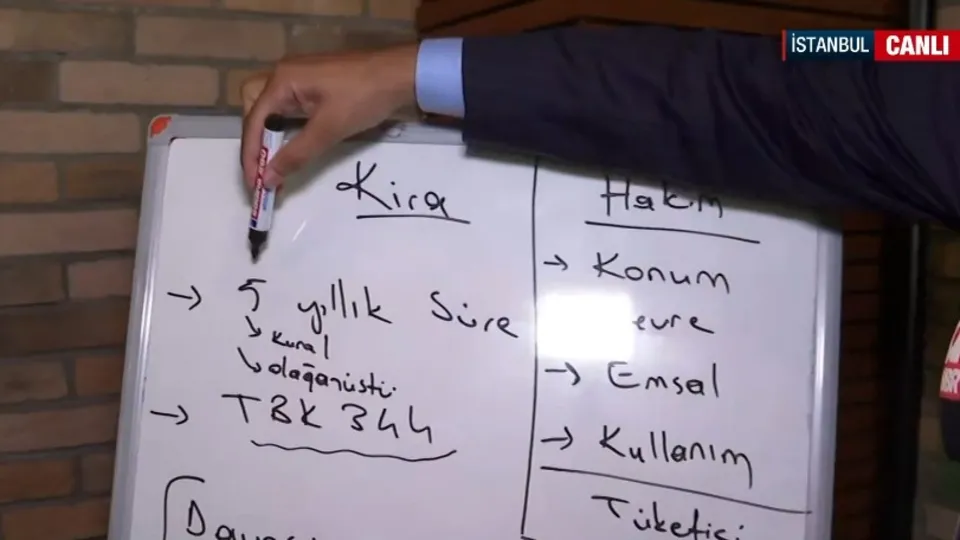 İSTANBUL CANLI
Kira
→ 5 yıllık Süre
↘ kural
↘ olağanüstü
→ TBK 344
Hakim
→ Konum
evre
→ Emsal
→ Kullanım
Tüketici